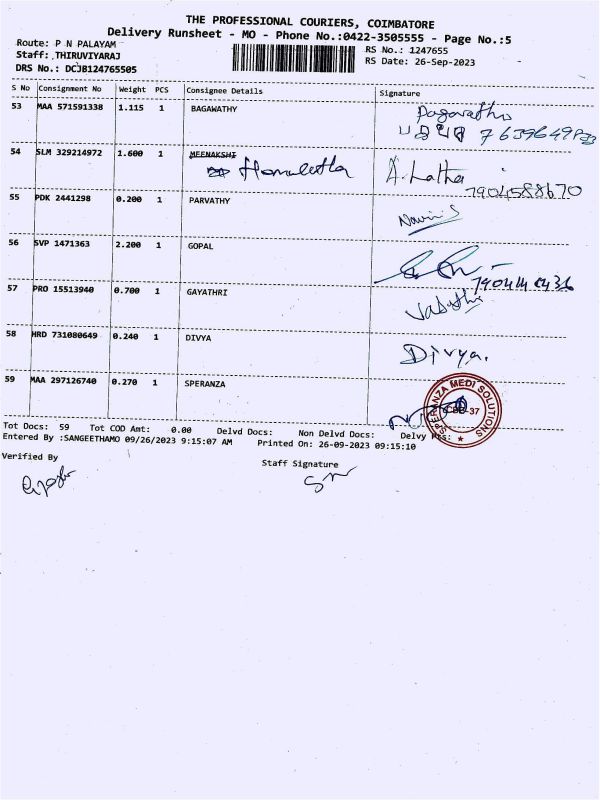 THE PROFESSIONAL COURIERS, COIMBATORE
Delivery Runsheet - MO - Phone No.:0422-3505555 - Page No.:5
Route: P N PALAYAM
Staff: THIRUVIYARAJ
DRS No.: DCJB124765505
RS No.: 1247655
RS Date: 26-Sep-2023
S No Consignment No Weight PCS Consignee Details Signature
53 MAA 571591338 1.115 1 BAGAWATHY
54 SLM 329214972 1.600 1 MEENAKSHI
Hemalatha A. Latha
7904588670
55 PDK 2441298 0.200 1 PARVATHY
56 SVP 1471363 2.200 1 GOPAL
57 PRO 15513940 0.700 1 GAYATHRI
58 HRD 731080649 0.240 1 DIVYA Divya.
59 MAA 297126740 0.270 1 SPERANZA
SPERANZA MEDI SOLUTIONS
Tot Docs: 59 Tot COD Amt: 0.00 Delvd Docs: Non Delvd Docs: Delvy
Entered By :SANGEETHAMO 09/26/2023 9:15:07 AM Printed On: 26-09-2023 09:15:10
Verified By
Staff Signature